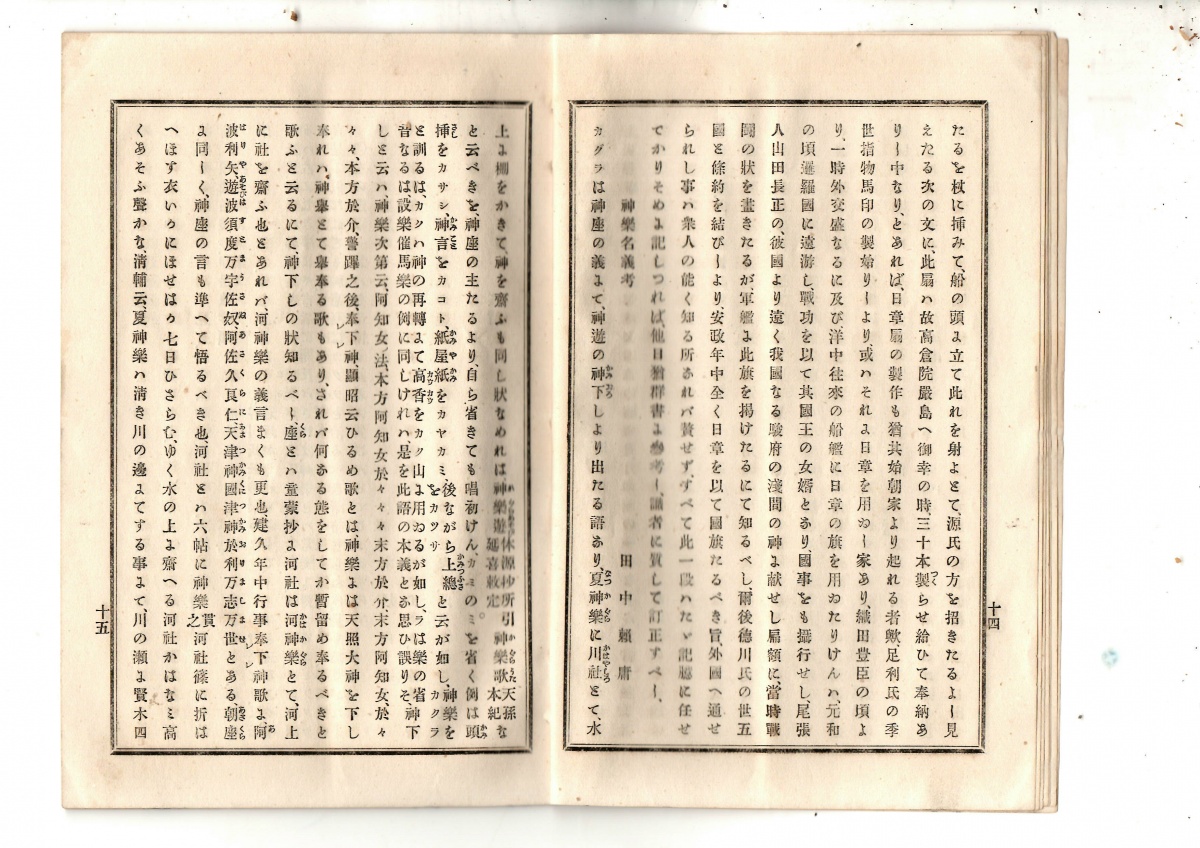 たるを杖に挿みて、船の頭よ立て此れを射よとて、源氏の方を招きたるよし見
えたる次の文に此扇ハ故高倉院嚴島へ御幸の時、三十本製らせ給ひて奉納あ
りし中なり、とあれば、日章扇の製作も猶其始朝家より起れる者歟、足利氏の季
世指物馬印の製始りしより、或ハそれよ日章を用ゐし家あり、織田豐臣の頃よ
り、一時外交盛なるに及び洋中往來の船艦に日章の旗を用ゐたりけんハ元和
の頃暹羅國に遠游し、戰功を以て其國王の女婿とあり、國事をも攝行せし、尾張
人山田長正の、彼國より遠く我國なる駿府の淺間の神よ献せし扁額に、當時戰
鬪の狀を畫きたるが、軍艦よ此旗を揭けたるにて知るべし、爾後德川氏の世五
國と條約を結びしより、安政年中全く日章を以て國旗たるべき旨外國へ通せ
られし事ハ衆人の能く知る所あれバ贅せず、すべて此一段ハたゞ記臆に任せ
てかりそめよ記しつれば、他日猶群書よ參考し、識者に質して訂正すべし、
神樂名義考
田中賴庸
カグラは神座の義よて神遊の神下しより出たる語あり、夏神樂に川社とて、水
十四
上よ棚をかきて、神を齋ふも同し狀なめれは神樂遊延喜敕定体源抄所引神樂歌本紀天孫な
と云べきを神座の主たるより、自ら省きても唱初けん、カミのミを省く例は頭
挿をカサシ神言をカコト、紙屋紙をカヤカミ、後ながら上總をカツサと云が如し、神樂をカクラ
と訓るは、カクハ神の再轉よて高香をカク山よ用ゐるが如し、ラは樂の省神下
音なるは、設樂催馬樂の例に同しけれハ是を此語の本義とお思ひ誤りそ、
しと云ハ、神樂次第云、阿知女法、本方阿知女於々々々末方於介、末方阿知女、於々
々々、本方於介、警蹕之後、奉下神顯昭云ひるめ歌とは、神樂よは天照大神を下し
奉れハ、神擧とて擧奉る歌もあり、されバ何ある態をしてか暫留め奉るべきと
歌ふと云るにて、神下しの狀知るべし、座とハ童蒙抄よ河社は河神樂とて、河上
に社を齋ふ也とあれバ、河神樂の義言まくも更也建久年中行事奉下神歌よ、阿
波利矢遊波須度万宇佐奴阿佐久良仁、天津神國津神於利万志万世とある、朝座
よ同しく、神座の言も準へて悟るべき也河社とハ六帖に神樂貫之河社篠に折は
へほす衣いかにほせはか七日ひさらむ、ゆく水の上よ齋へる河社かはなミ高
くあそふ聲かな、淸輔云、夏神樂ハ淸き川の邊よてする事よて、川の瀨よ賢木四
十五